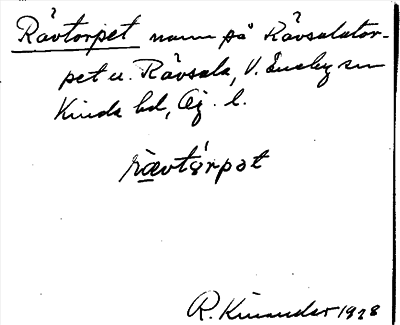 Rävtorpet namn på Rävsalator-
pet u. Rävsala, V. Eneby sn
Kinda hd, Ög. l.
rävtǻrpət
R. Kinander 1928